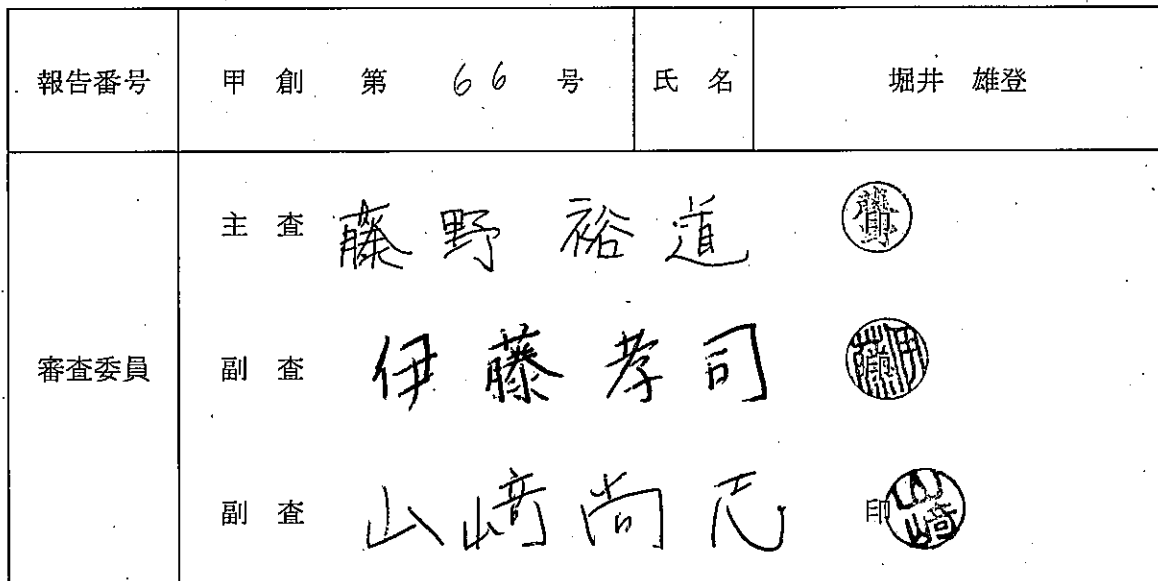 報告番号 甲 創 第 66 号 氏 名 堀井 雄登
主 査 藤野裕道 藤野
審査委員 副 査 伊藤孝司 伊藤
副 査 山﨑尚志 印 山﨑